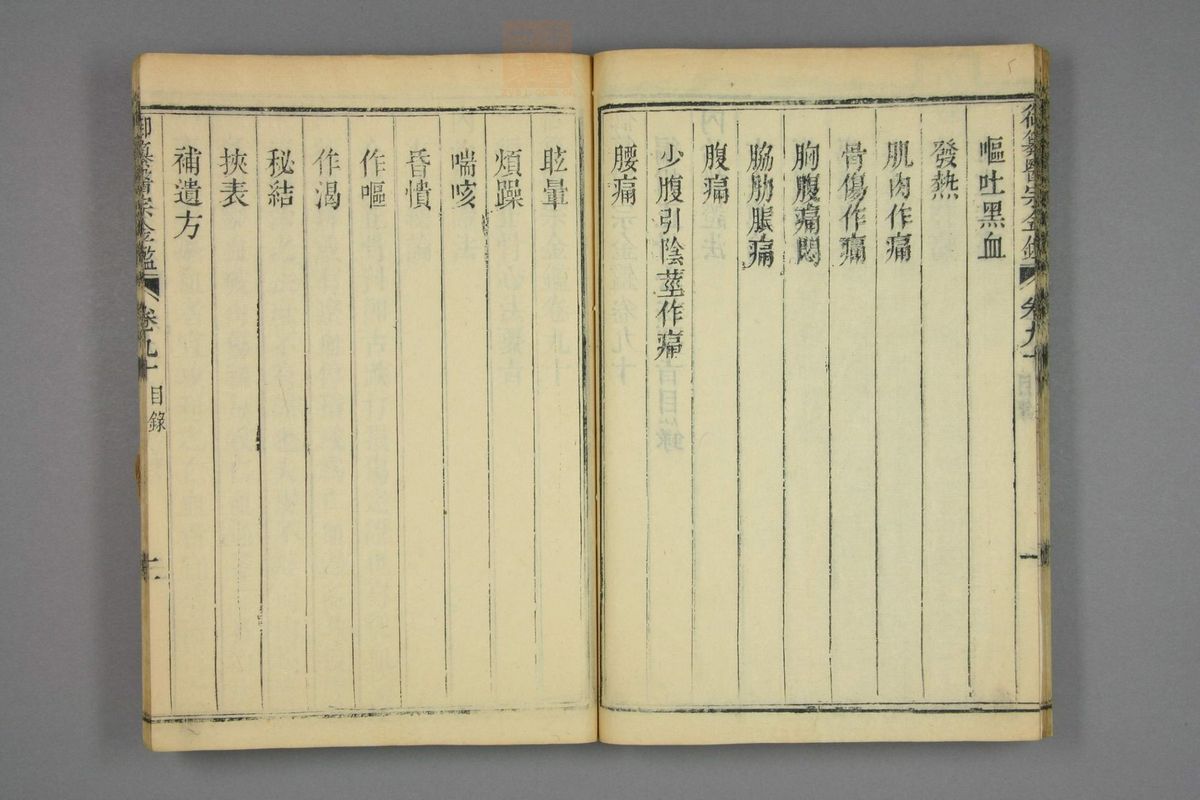 御纂醫宗金鑑 卷九十 目錄 一
嘔吐黑血
發熱
肌肉作痛
骨傷作痛
胸腹痛悶
脇肋脹痛
腹痛
少腹引陰莖作痛
腰痛
眩暈
煩躁
喘咳
昏憒
作嘔
作渴
秘結
挾表
補遺方
御纂醫宗金鑑 卷九十 目錄 二